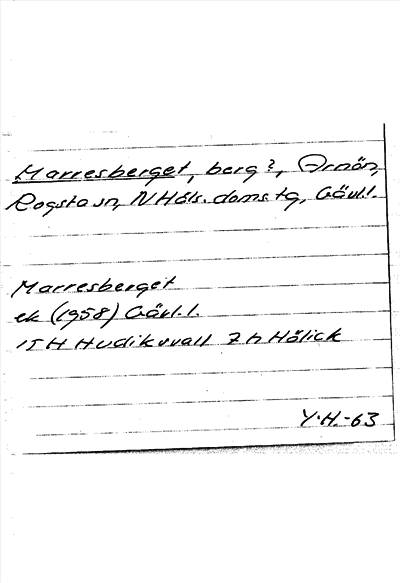 Marresberget, berg?, Arnön,
Rogsta sn, N Häls. doms. tg, Gävl.l.
Marresberget
ek (1958) Gävl.l.
15H Hudiksvall 7h Hölick
Y.H.-63